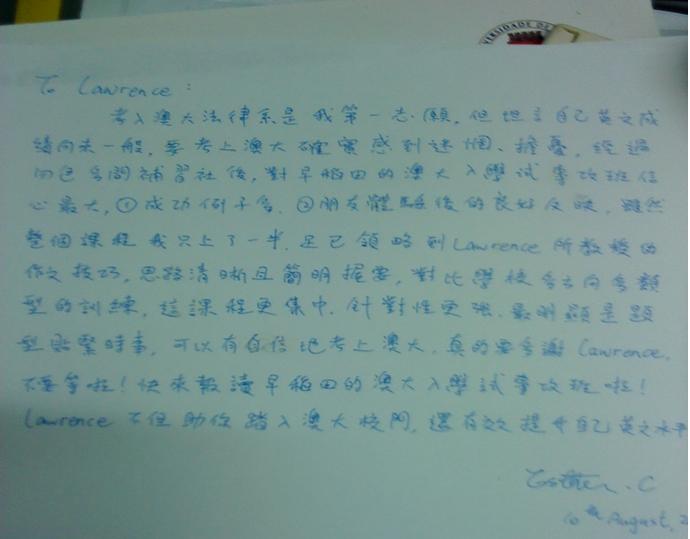 VERSIDADE DE
To Lawrence :
考入澳大法律系是我第一志願，但坦言自己英文成
績向來一般，要考上澳大確實感到迷惘、擔憂，經過
向色多間補習社後，對早稻田的澳大入學試專攻班信
心最大，①成功例子多，②朋友體驗後的良好反映，雖然
整個課程我只上了一半，足已領略到Lawrence所教授的
作文技巧，思路清晰且簡明握要，對比學校多方向多類
型的訓練，這課程更集中，針對性更強，最明顯是題
型貼緊時事，可以有自信地考上澳大，真的要多謝Lawrence,
不要等啦！快來報讀早稻田的澳大入學試專攻班啦！
Lawrence不但助你踏入澳大校門，還有效提升自己英文水平
Esther . C
10th August, 2